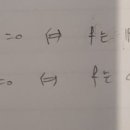 =0 ⇔ f는
=0 ⇔ f는